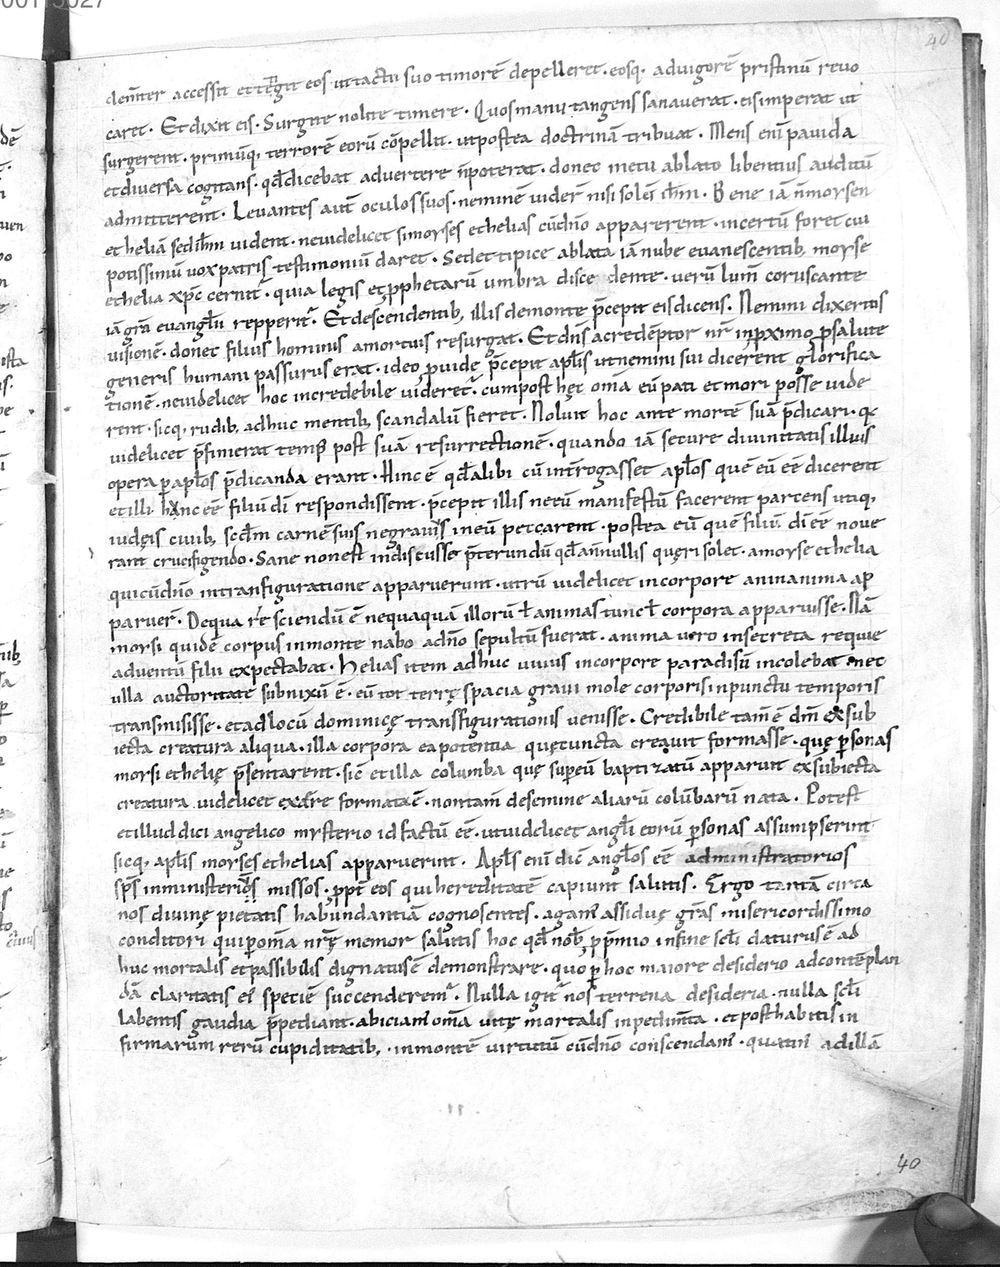 40
clemt̄er accessit et tetigit eos ut tactu suo timorē depelleret · eosq; ad uigorē pristinū reuo
caret · Et dixit eis · Surgite nolite timere · Quos manu tangens sanauerat · eis imperat ut
surgerent · primūq; terrorē eorū cōpellit · ut postea doctrinā tribuat · Mens enī pauida
et diuersa cogitans · qđ dicebat aduertere n̄ poterat · donec metu ablato libentius auditū
admitterent · Leuantes autē oculos suos · neminē uider̄ nisi solū ih̄m · Bene iā n̄ morsen
et heliā sed ih̄m uident · ne uidelicet si morses et helias cū dn̄o apparerent · incertū foret cui
potissimū uox patris testimoniū daret · Sed et tipice ablata iā nube euanescentib; morse
et helia xp̄c cernit᷑ · quia legis et ꝓphetarū umbra discedente · uerū lum̄ coruscante
iā gr̄a euangl̄ii repperit᷑ · Et descendentib; illis de monte p̄cepit eis dicens · Nemini dixeritis
uisionē · donec filius hominis a mortuis resurgat · Et dn̄s ac redēptor nr̄ in ꝓximo ꝓ salute
generis humani passurus erat · ideo ꝓuide p̄cepit apl̄is ut nemini sui dicerent glorifica
tionē · ne uidelicet hoc incredebile uideret᷑ · cum post hęc om̄a eū pati et mori posse uide
rent · sicq; rudib; adhuc mentib; scandalū fieret · Noluit hoc ante mortē suā p̄dicari · qđ
uidelicet p̄finierat temp̄ post suā resurrectionē · quando iā secure diuinitatis illius
opera ꝑ apl̄os p̄dicanda erant · Hinc ē qđ alibi cū int̄rogasset apl̄os quē eū eē dicerent
et illi hunc eē filiū dī respondissent · p̄cepit illis ne eū manifestū facerent parcens utiq;
iudęis ciuib; scđm carnē suis ne grauius in eū peccarent · postea eū quē filiū dī eē noue
rant crucifigendo · Sane non est indiscusse p̄tereundū qđ a nnullis quęri solet · a morse et helia
qui cū dn̄o in transfiguratione apparuerunt · utrū uidelicet in corpore an in anima ap
paruer̄ · De qua re sciendū ē nequaquā illorū l̄ animas tunc l̄ corpora apparuisse · Nā
morsi quidē corpus in monte nabo ad n̄o sepultū fuerat · anima uero in secreta requie
aduentū filii expectabat · Helias item adhuc uiuus in corpore paradisū incolebat · nec
ulla auctoritate subnixū ē · eū tot terrę spacia graui mole corporis in punctu temporis
transmisisse · et ad locū dominicę transfigurationis uenisse · Credibile tam̄ ē dm̄ ex sub
iecta creatura aliqua · illa corpora ea potentia quę cuncta creauit formasse · quę ꝑsonas
morsi et helię p̄sentarent · sic̄ et illa columba quę super̄ eū baptizatū apparuit ex subiecta
creatura uidelicet ex aere formata ē · non tam̄ de semine aliarū colūbarū nata · Potest
et illud dici angelico mysterio id factū eē · ut uidelicet angl̄i eorū ꝑsonas assumpserint
sicq; apl̄is morses et helias apparuerint · Apl̄s enī dic̄ angl̄os eē administratorios
sp̄s in ministerium missos · ꝓpt̄ eos qui hereditatē capiunt salutis · Ergo tantā circa
nos diuinę pietatis habundantiā cognoscentes · agam᷑ assiduę gr̄as misericordissimo
conditori qui ꝑ om̄a nr̄ę memor salutis hoc qđ nob̄ ꝓ p̄mio in fine scl̄i daturus ē ad
huc mortalis et passibilis dignatus ē demonstrare · quo ꝑ hoc maiore desiderio ad contēplan
dā claritatis ei᷑ speciē succenderem᷑ · Nulla igit᷑ nos terrena desideria · nulla scl̄i
labentis gaudia p̄pediant · abiciam᷑ om̄a uitę mortalis inpedim̄ta · et posthabitis in
firmarum rerū cupiditatib; · in montē uirtutū cū dn̄o conscendam᷑ · quatin᷑ ad illā
40